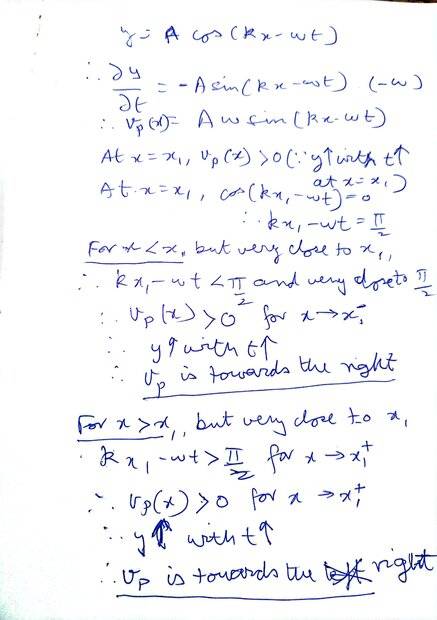 y = A cos(kx-ωt)
∴ ∂y/∂t = -A sin(kx-ωt) (-ω)
∴ v_p(x) = Aω sin(kx-ωt)
At x = x₁, v_p(x) > 0 (∵ y↑ with t↑
at x = x₁)
At x = x₁, cos(kx₁-ωt) = 0
∴ kx₁-ωt = π/2
For x < x₁, but very close to x₁,
∴ kx₁-ωt < π/2 and very close to π/2
∴ v_p(x) > 0 for x → x₁⁻
∴ y↑ with t↑
∴ v_p is towards the right
For x > x₁, but very close to x₁
∴ kx₁-ωt > π/2 for x → x₁⁺
∴ v_p(x) > 0 for x → x₁⁺
∴ y↑ with t↑
∴ v_p is towards the right